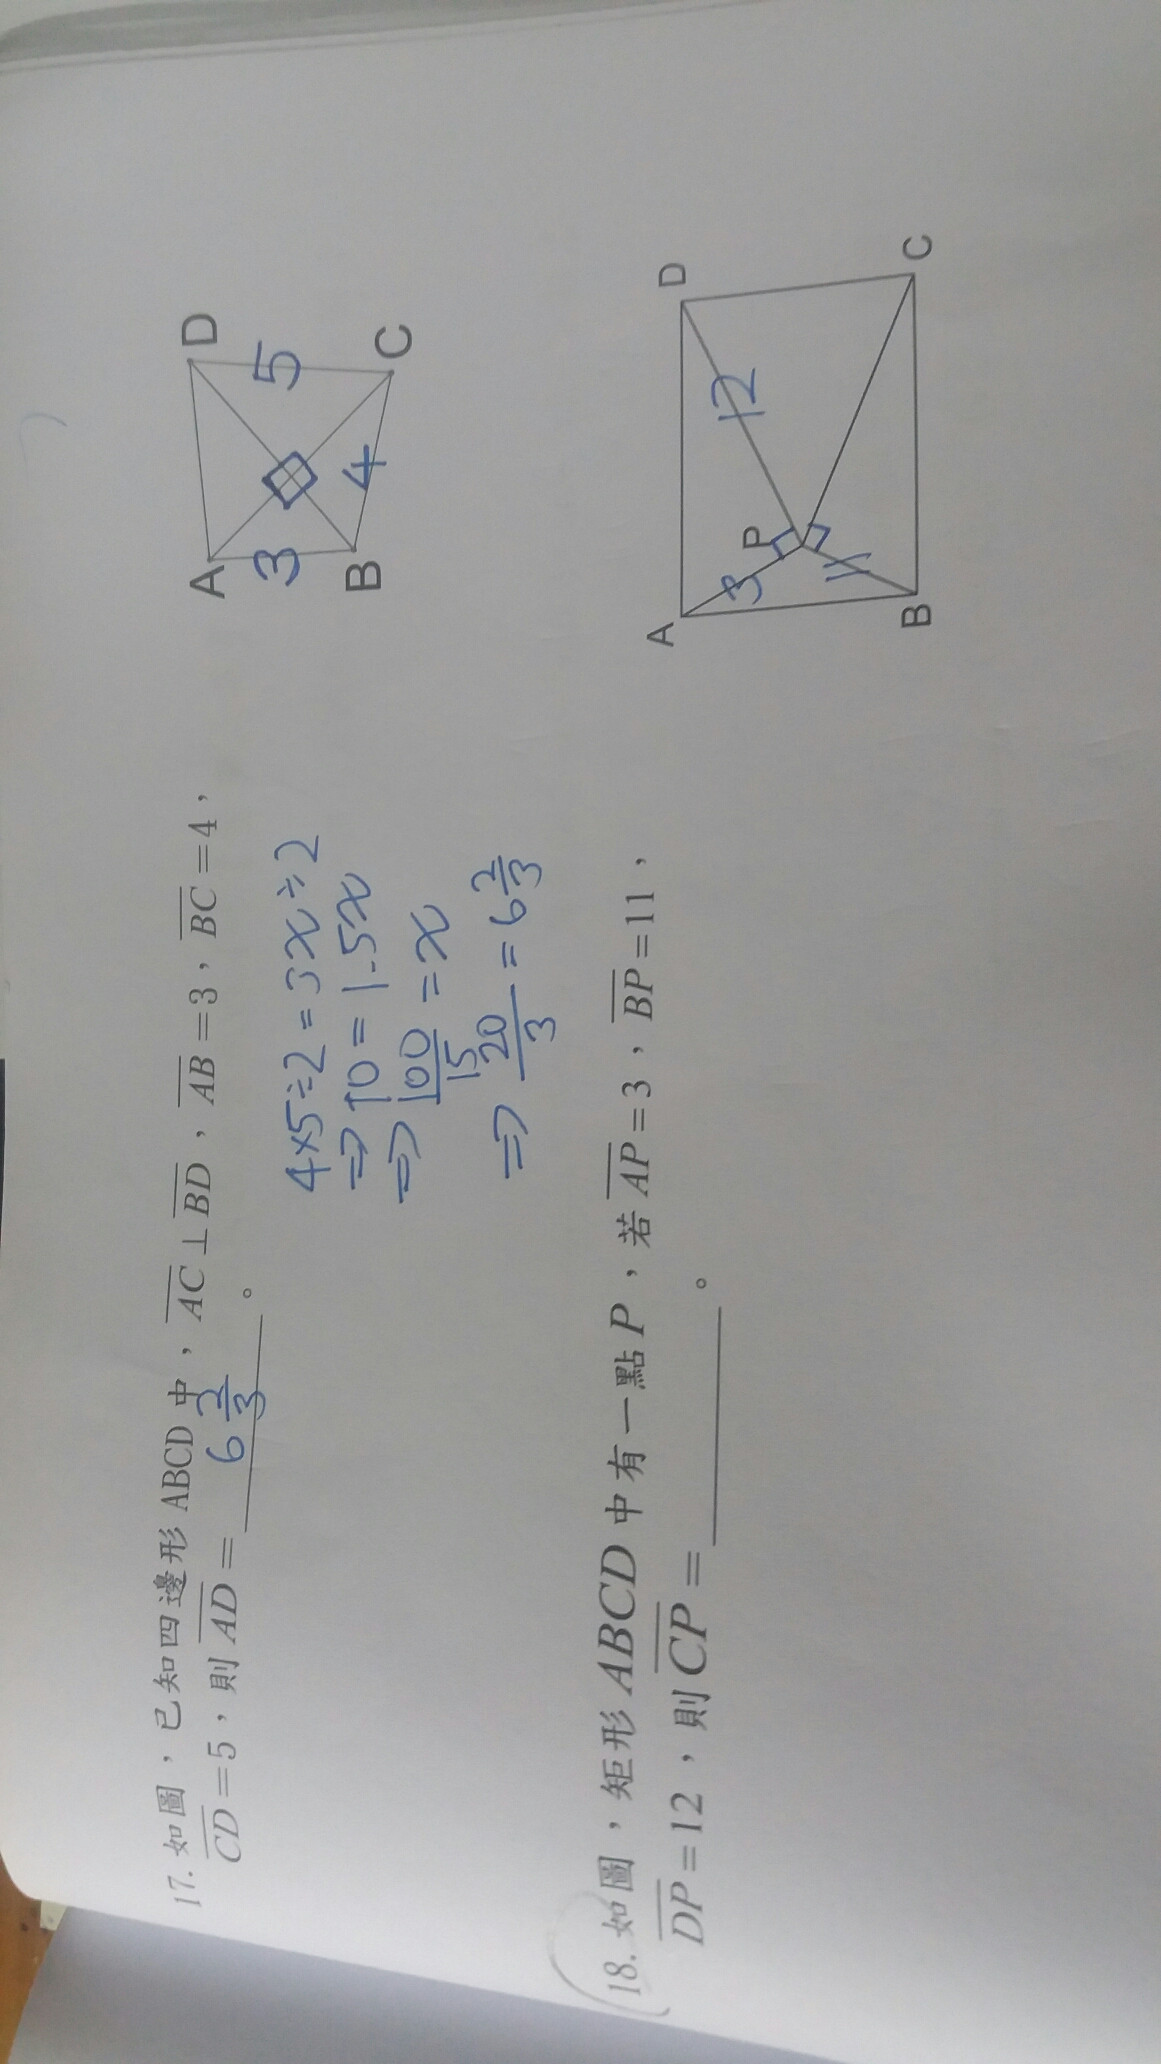 17. 如圖，已知四邊形 ABCD 中，AC⊥BD，AB=3，BC=4，
CD=5，則 AD= 6 2/3 。
4×5÷2=3x÷2
⇒10=1.5x
⇒100/15=x
⇒20/3=6 2/3
A
D
B
C
3
5
4
18. 如圖，矩形 ABCD 中有一點 P，若 AP=3，BP=11，
DP=12，則 CP= 。
A
D
P
B
C
3
12
11